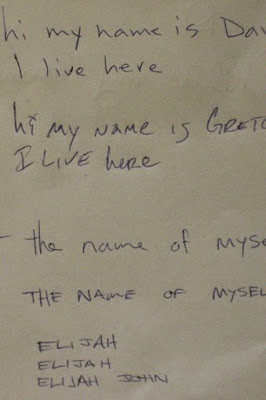 hi my name is Dav
I live here
hi my name is GRETC
I LIVE here
the name of myse
THE NAME OF MYSEL
ELIJAH
ELIJAH
ELIJAH JOHN